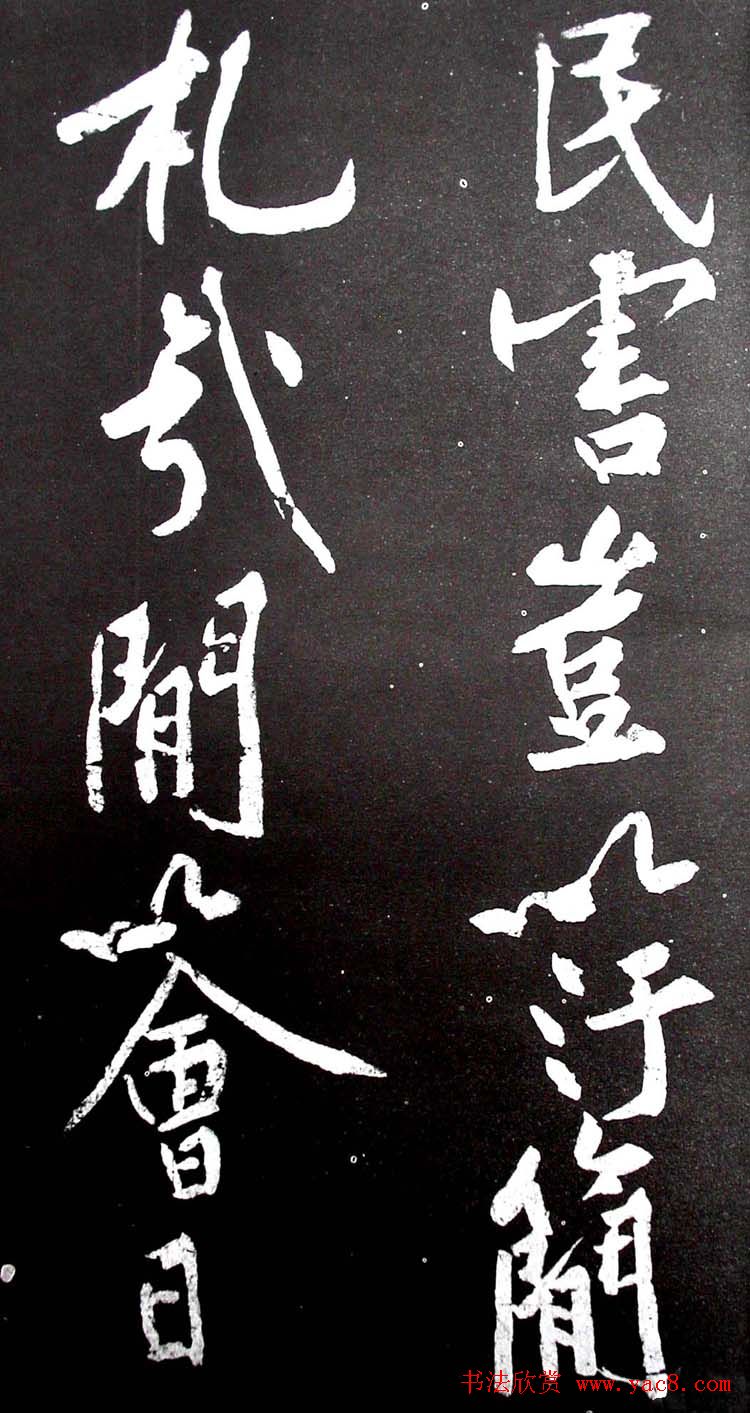 民害豈以汙簡
札哉閒以會日
书法欣赏 www.yac8.com